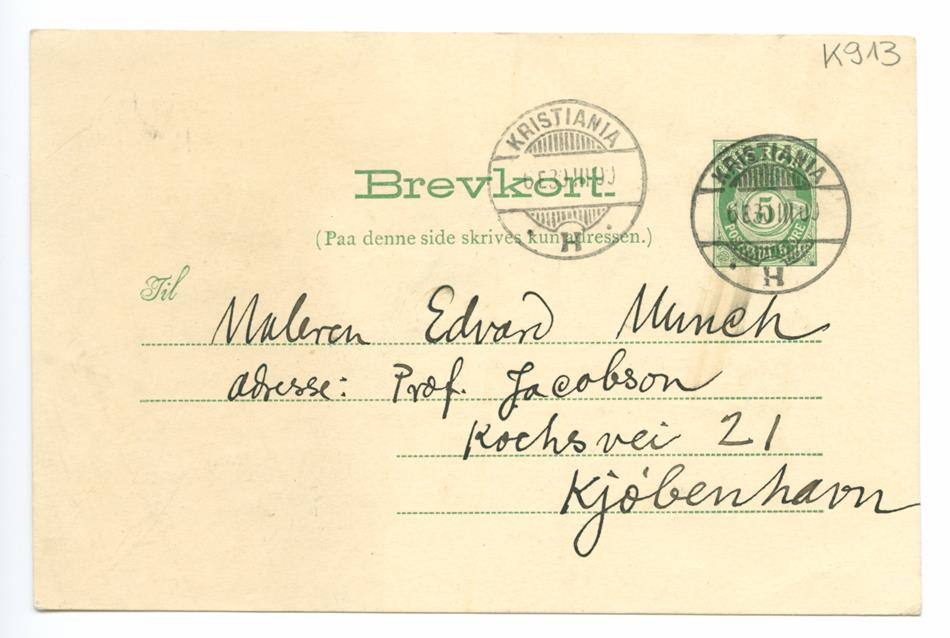 K913
KRISTIANIA
KRISTIANIA
Brevkort.
(Paa denne side skrives kun adressen.)
5
H
H
Til
Maleren Edvard Munch
adresse: Prof. Jacobson
Kochsvei 21
Kjöbenhavn